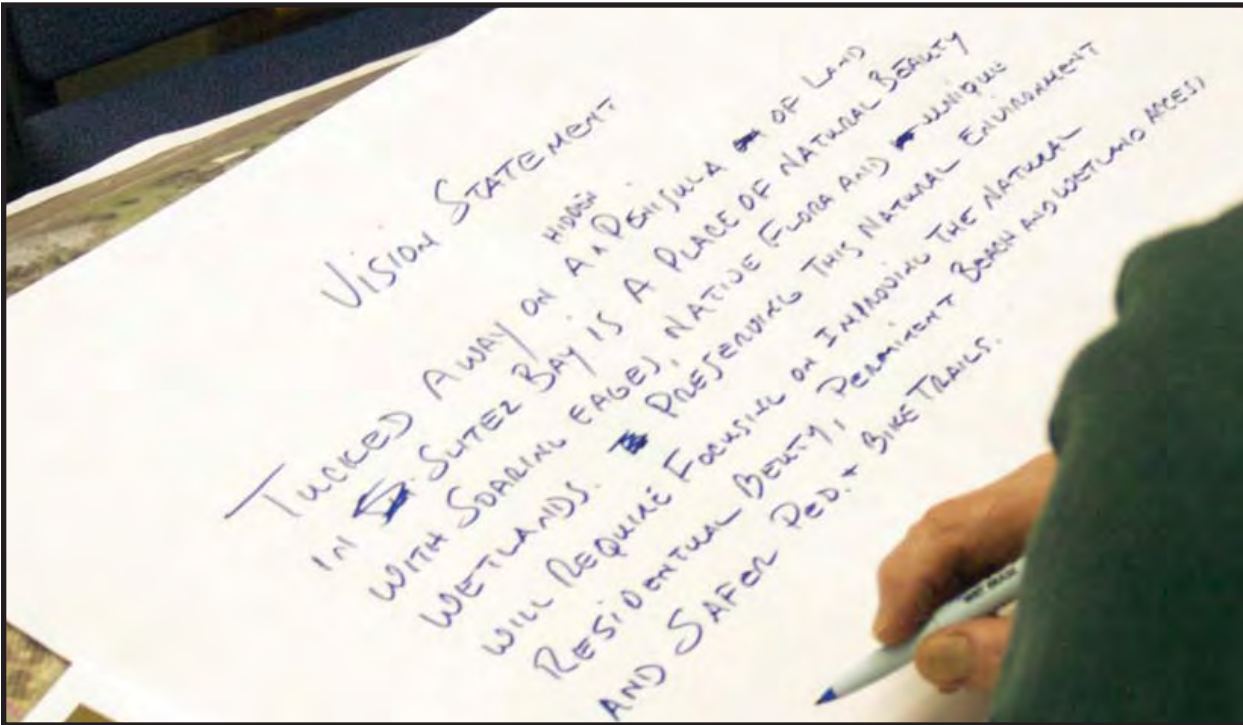 VISION STATEMENT
HIDDEN
TUCKED AWAY ON A PENISULA OF LAND
IN SUITEZ BAY IS A PLACE OF NATURAL BEAUTY
WITH SOARING EAGES, NATIVE FLORA AND UNIQUE
WETLANDS. PRESERVING THIS NATURAL ENVIRONMENT
WILL REQUIRE FOCUSING ON IMPROVING THE NATURAL
RESIDENTUAL BEUTY, PERMINENT BEACH AND WETLAND ACCESS
AND SAFER PED. + BIKE TRAILS.